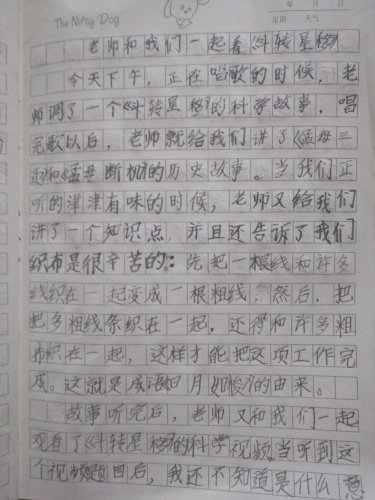 The Nifty Dog
年 月 日
星期 天气
老师和我们一起看《斗转星移》
今天下午，正在唱歌的时候，老
师调了一个《斗转星移》的科学故事。唱
完歌以后，老师就给我们讲了《孟母三
迁》和《孟母断机》的历史故事。当我们正
听的津津有味的时候，老师又给我们
讲了一个知识点，并且还告诉了我们
织布是很辛苦的：先把一根线和许多
线织在一起变成一根粗线，然后，把
把多粗线条织在一起，还得和许多粗
布织在一起，这样才能把这项工作完
成。这就是成语《日月如梭》的由来。
故事听完后，老师又和我们一起
观看了《斗转星移》的科学视频，当听到这
个视频题目后，我还不知道是什么意